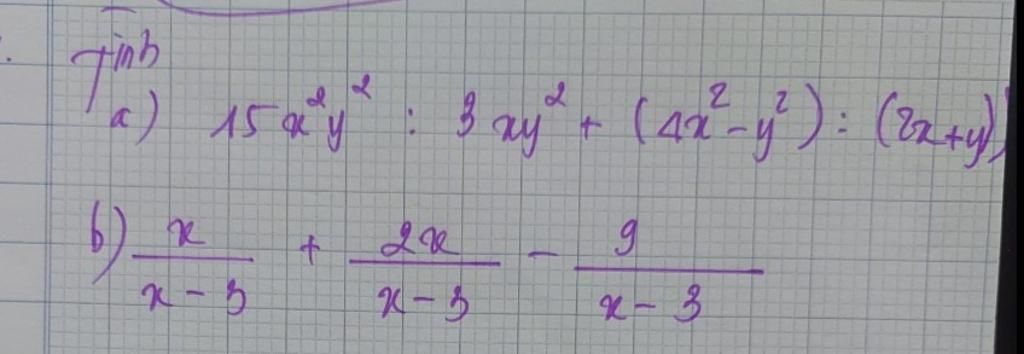 Tính
a) 15x²y² : 3xy² + (4x² - y²) : (2x+y)
b) x/(x - 3) + 2x/(x - 3) - 9/(x - 3)